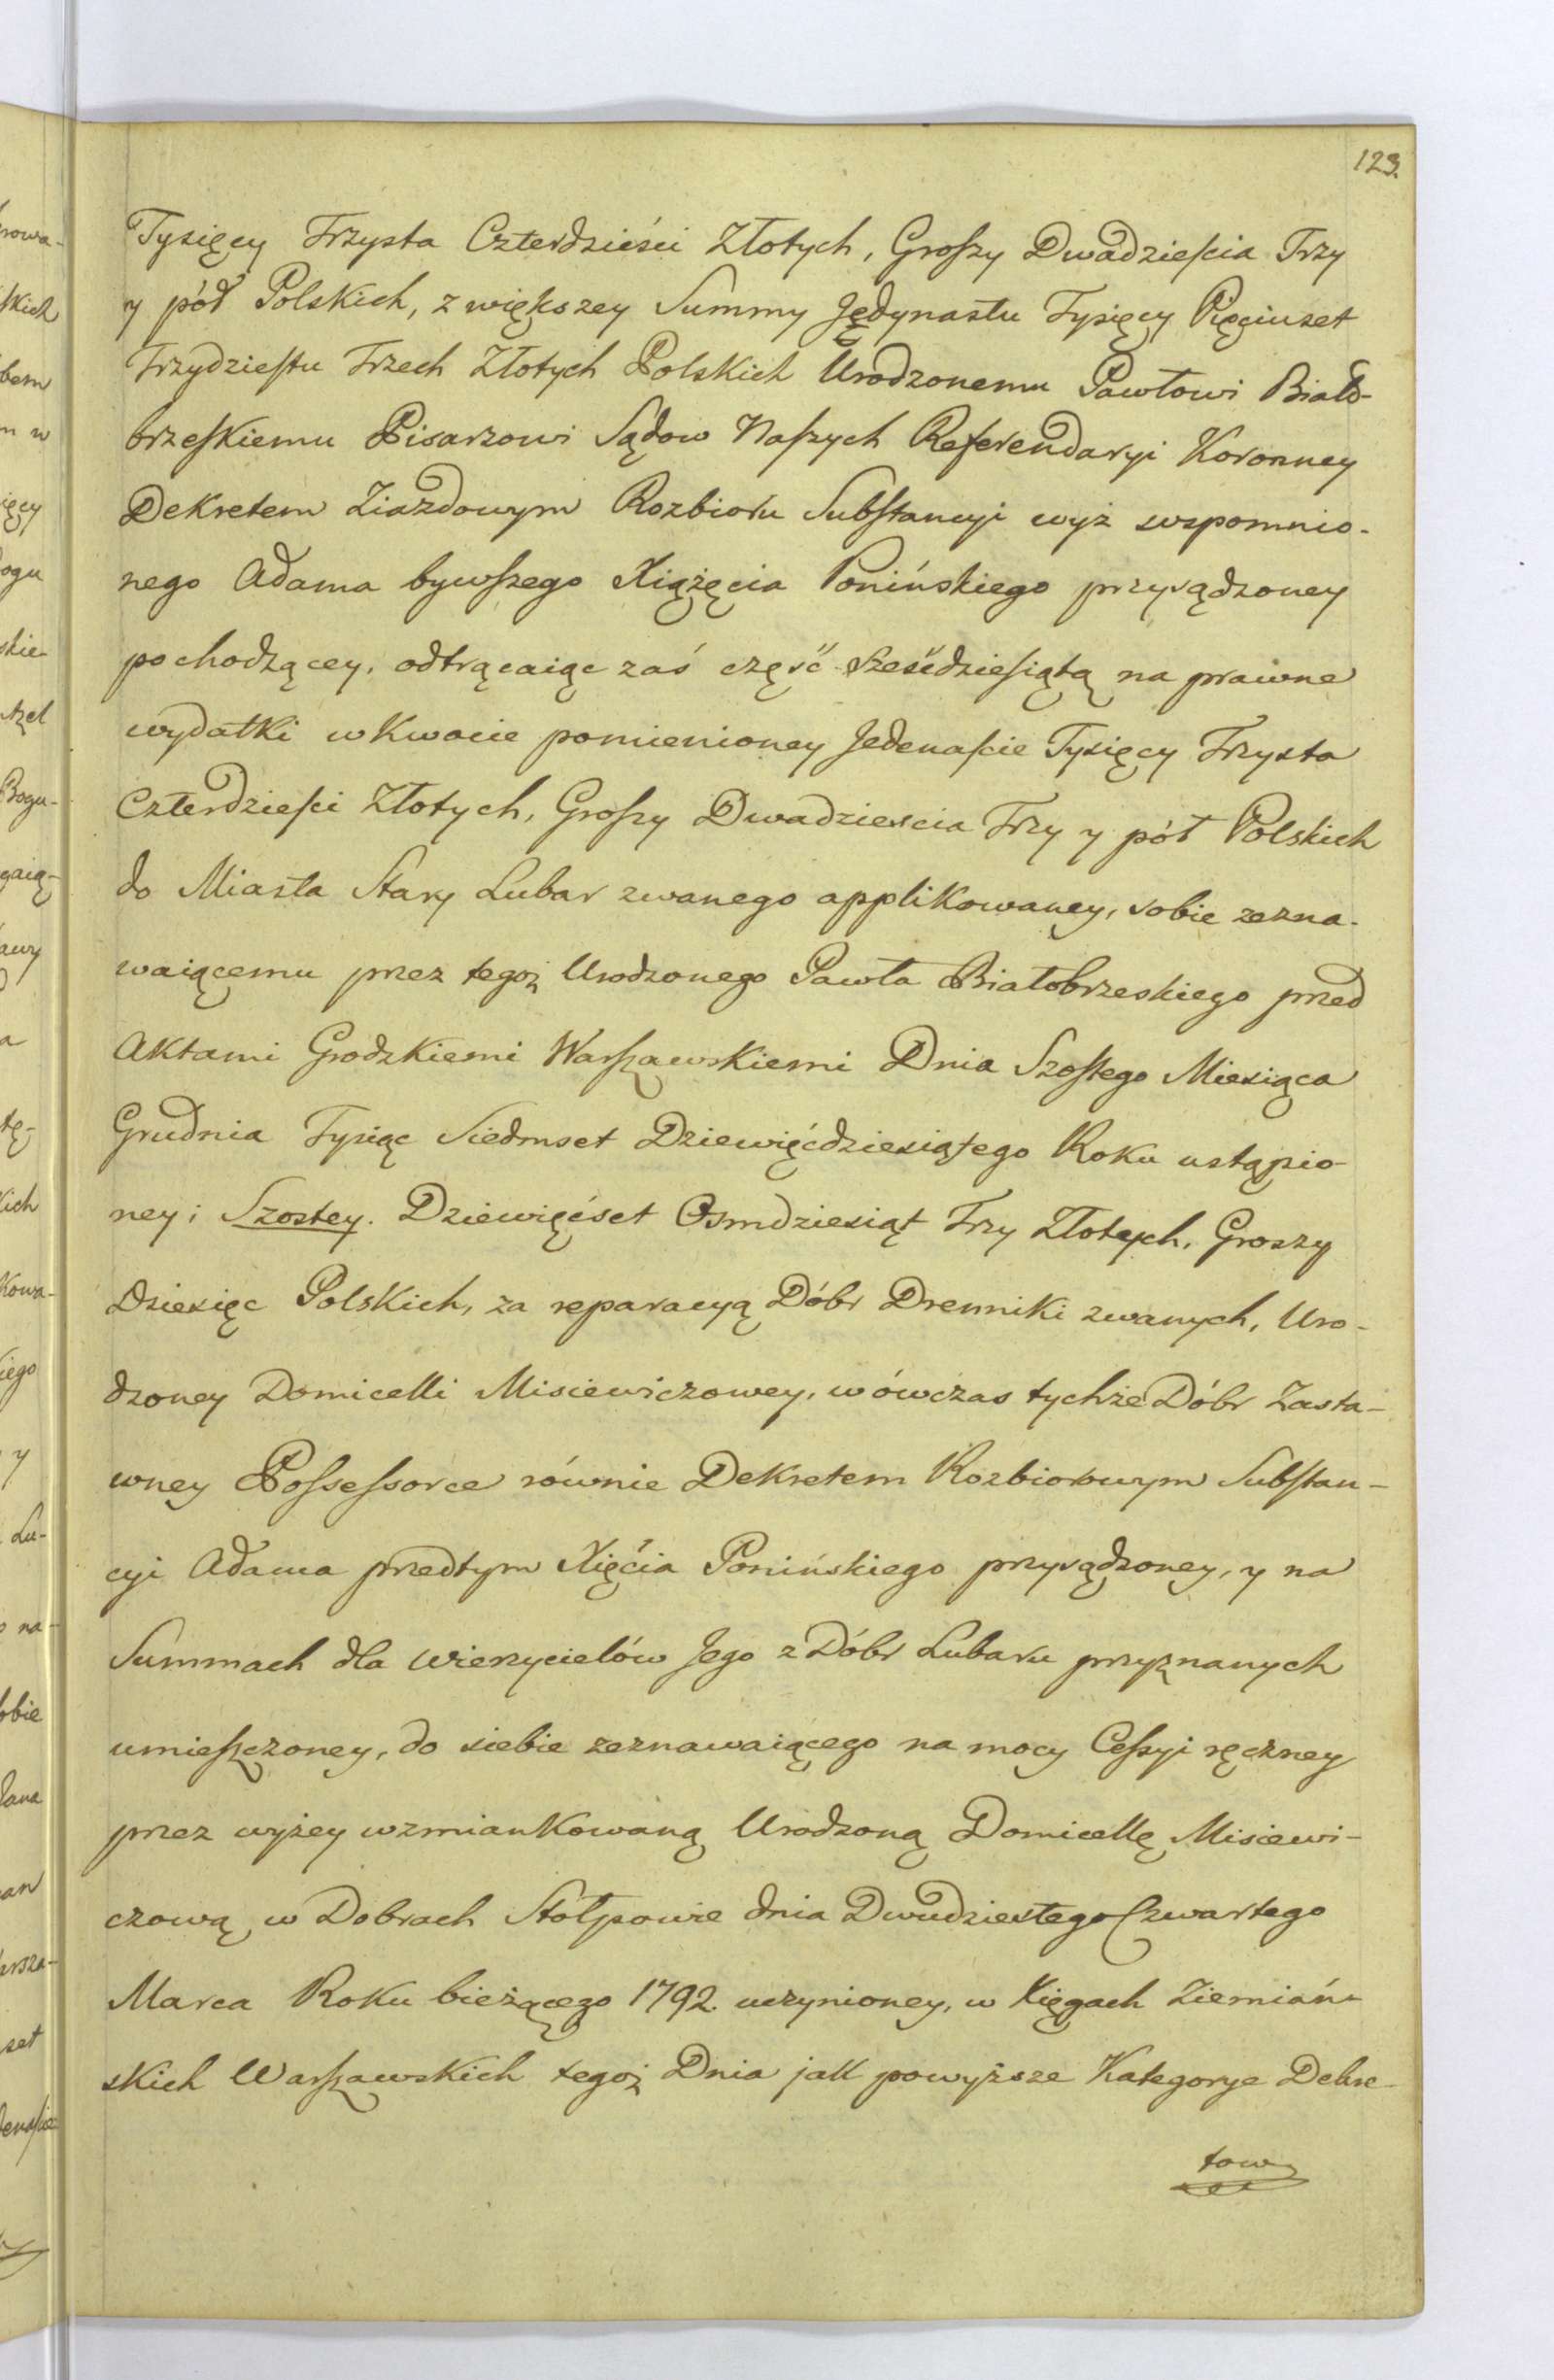 123.
Tysięcy Trzysta Czterdzieści Złotych, Groszy Dwadzieścia Trzy
y pół Polskich, z większey Summy Jędynastu Tysięcy Pięciuset
Trzydziestu Trzech Złotych Polskich Urodzonemu Pawłowi Biało-
brzeskiemu Pisarzowi Sądow Naszych Referendaryi Koronney
Dekretem Ziazdowym Rozbioru Substancyi wyż wspomnio-
nego Adama bywszego Xiążęcia Ponińskiego przysądzoney
pochodzącey, odtrącaiąc zaś część sześćdziesiątą na prawne
wydatki w Kwocie pomienioney Jedenaście Tysięcy Trzysta
Czterdzieści Złotych, Groszy Dwadzieścia Trzy y pół Polskich
do Miasta Stary Lubar zwanego applikowaney, sobie zezna-
waiącemu przez tegoż Urodzonego Pawła Białobrzeskiego przed
Aktami Grodzkiemi Warszawskiemi Dnia Szostego Miesiąca
Grudnia Tysiąc Siedmset Dziewięćdziesiątego Roku ustąpio-
ney; Szostey. Dziewięćset Osmdziesiąt Trzy Złotych, Groszy
Dziesięc Polskich, za reparacyą Dóbr Drenniki zwanych, Uro-
dzoney Domicelli Misiewiczowey, wówczas tychże Dóbr Zasta-
wney Possessorce równie Dekretem Rozbiorowym Substan-
cyi Adama przedtym Xięcia Ponińskiego przysądzoney, y na
Summach dla Wierzycielów Jego z Dóbr Lubaru przyznanych
umieszczoney, do siebie zeznawaiącego na mocy Cessyi ręczney
przez wyżey wzmiankowaną Urodzoną Domicellę Misiewi-
czową w Dobrach Stołpowie dnia Dwudziestego Czwartego
Marca Roku bieżącego 1792. uczynioney, w Xięgach Ziemiań-
skich Warszawskich tegoż Dnia jak powyższe Kategorye Dekre-
tow